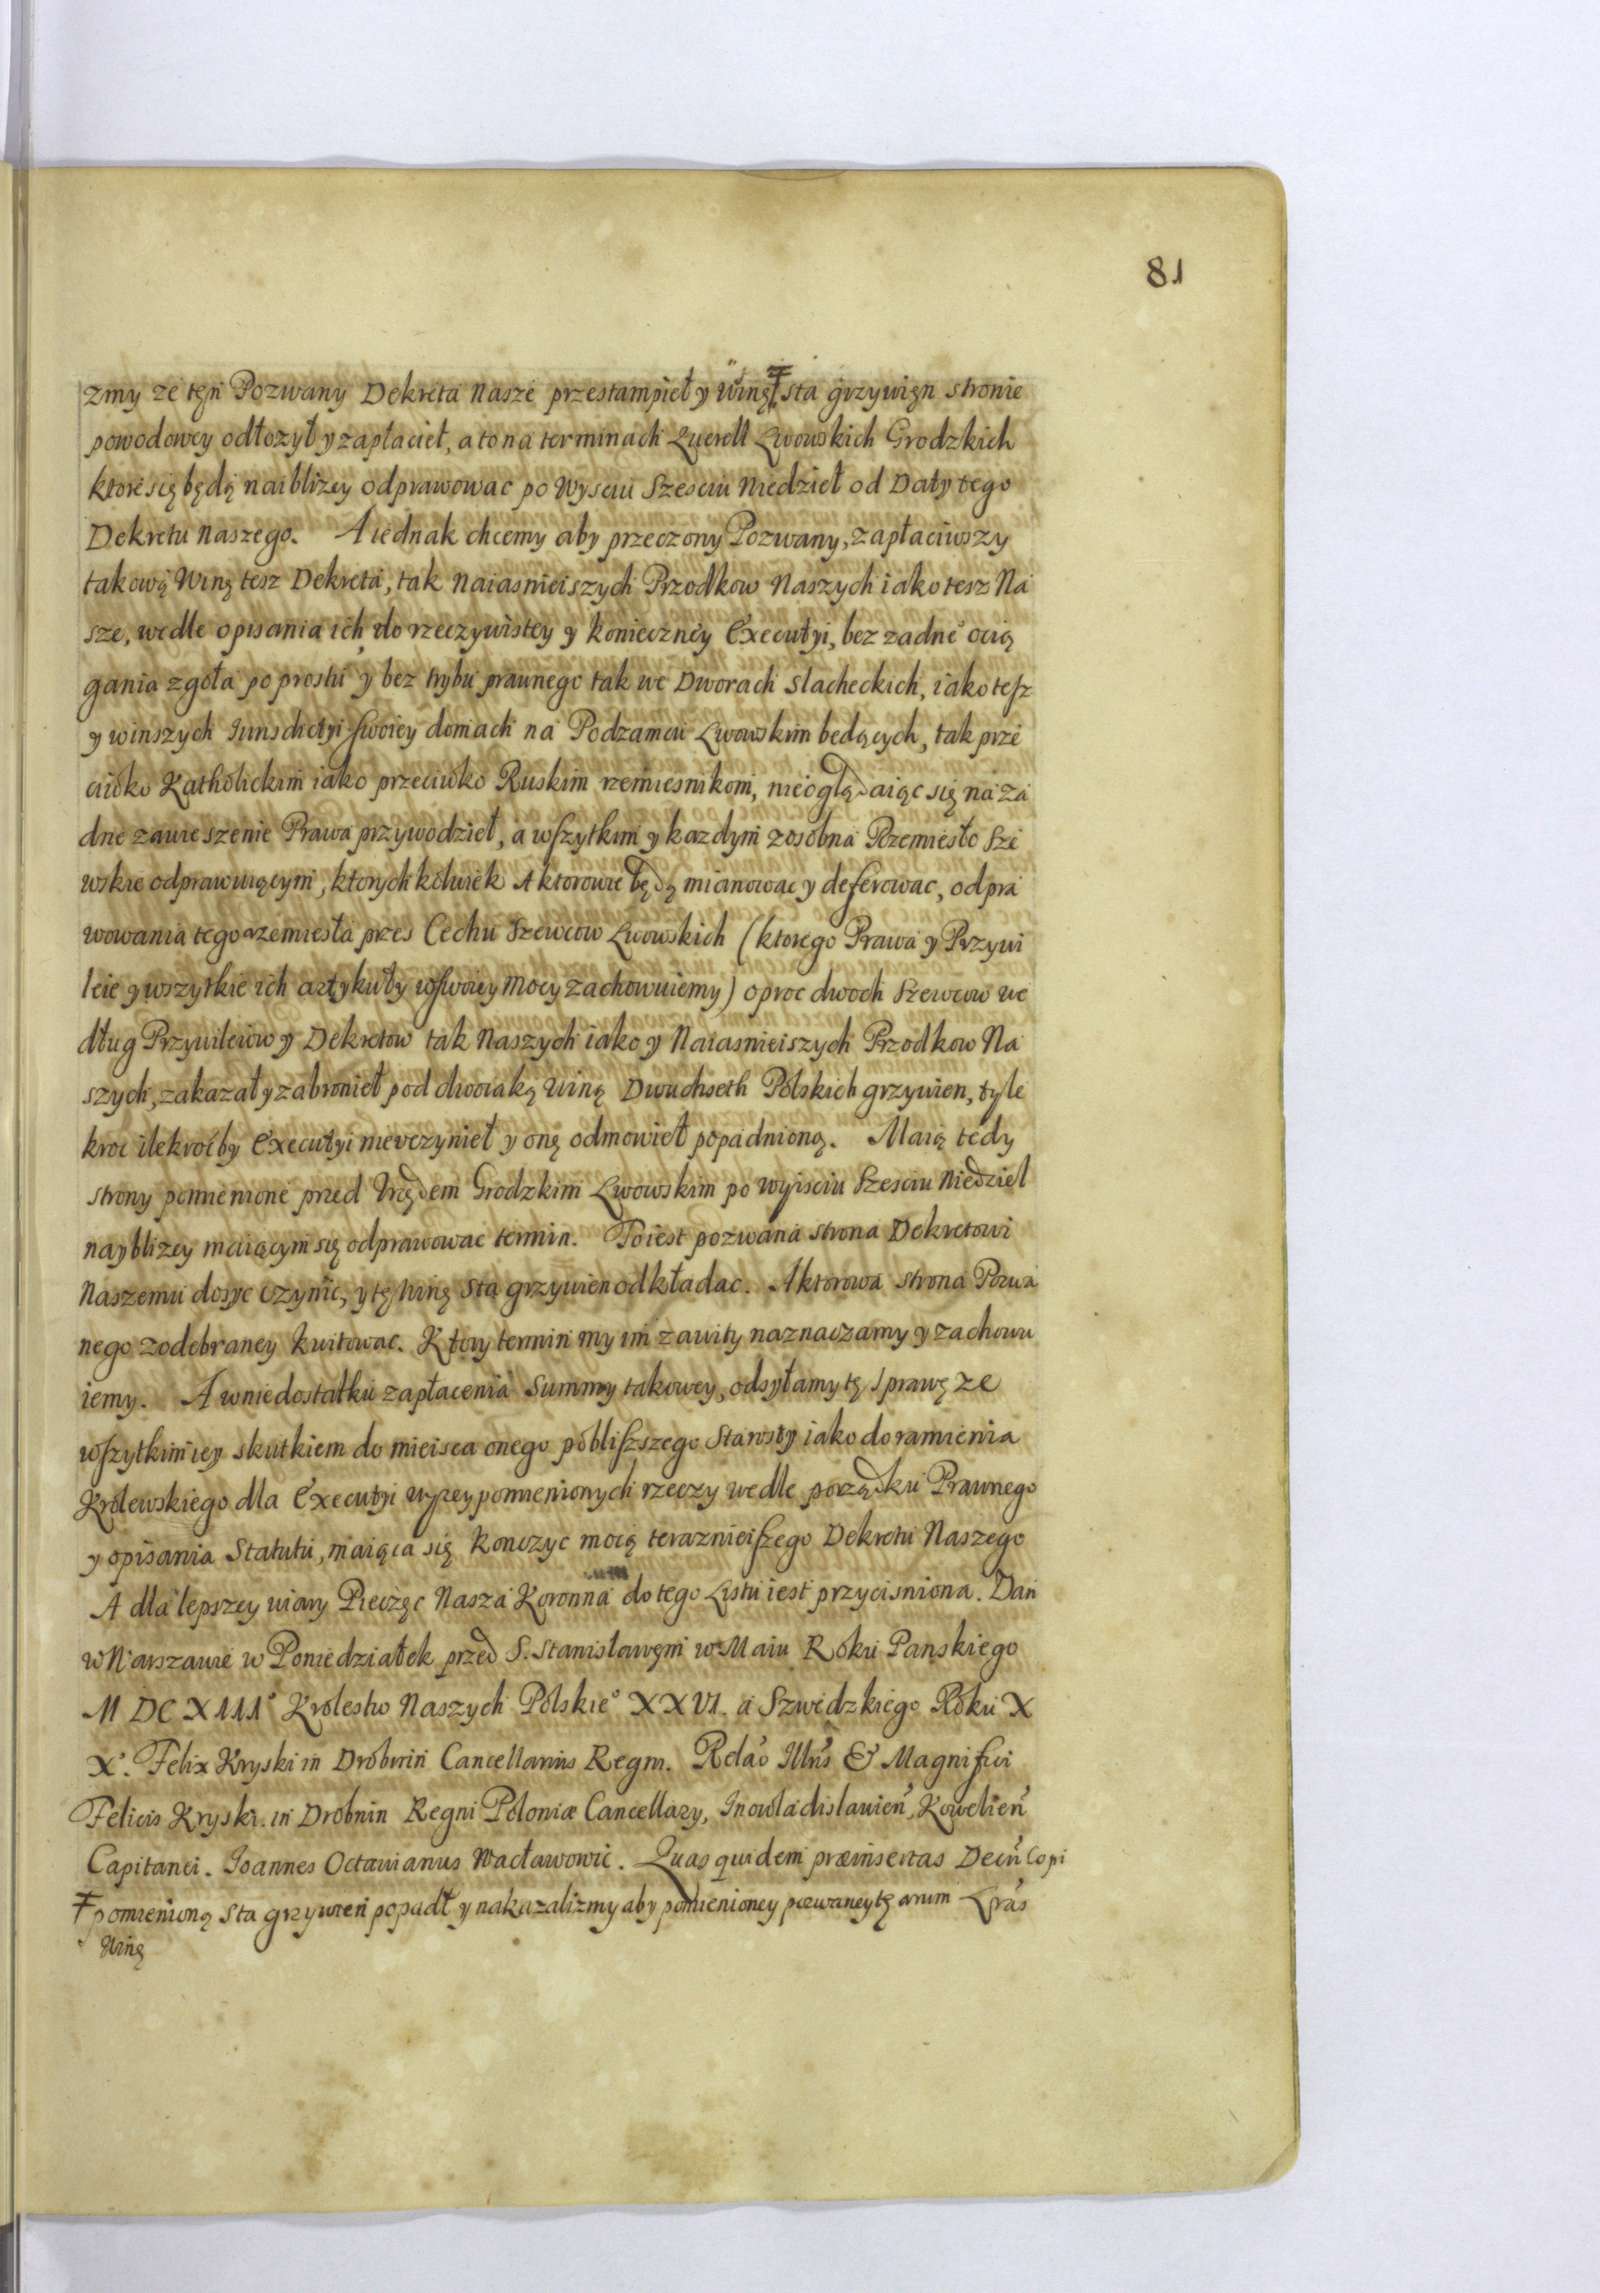 81
zmy ze tęn Pozwany Dekreta Nasze przestampieł y winę ŧ sta grzywięn stronie
powodowey odłozył y zapłacieł, a to na terminach Querell Lwowskich Grodzkich
ktore się będą naiblizey odprawowac po Wysciu Szesciu Niedzieł od Daty tego
Dekretu Naszego. A iednak chcemy aby przeczony Pozwany, zapłaciwszy
takową Winę tesz Dekreta, tak Naiasnieiszych Przodkow Naszych iako tesz Na
sze, wedle opisania ich, do rzeczywistey y konieczney Executyi, bez zadne° ocią
gania zgoła po prostu y bez trybu prawnego tak we Dworach Slacheckich, iako tesz
y w inszych Iurisdictyi swoiey domach na Podzamcu Lwowskim bedących, tak prze
ciwko Katholickim iako przeciwko Ruskim rzemiesnikom, nieoglądaiąc się na za
dne zawieszenie Prawa przywodzieł, a wszytkim y kazdym zosobna Rzemiesło Sze
wskie odprawuiącym, ktorychkolwiek Aktorowie będą mianowac y deferowac, odpra
wowania tego rzemiesła przes Cechu Szewcow Lwowskich (ktorego Prawa y Przywi
leie y wszytkie ich artykuły w swoiey mocy zachowuiemy) oproc dwoch Szewcow we
dług Przywileiow y Dekretow tak Naszych iako y Naiasnieiszych Przodkow Na
szych, zakazał y zabronieł pod dwoiaką winą Dwuchseth Polskich grzywien, tyle
kroc ilekroc by Executyi nieuczynieł y onę odmowieł popadnioną. Maią tedy
strony pomienione przed Urzędem Grodzkim Lwowskim po wyisciu Szesciu Niedziel
nayblizey maiącym się odprawowac termin. To iest pozwana strona Dekretowi
Naszemu dosyc czynic, y tę winę sta grzywien odkładac. Aktorowa strona Pozwa
nego zodebraney kwitowac. Ktory termin my im zawity naznaczamy y zachowu
iemy. A w niedostatku zapłacenia Summy takowey, odsyłamy tę sprawę ze
wszytkim iey skutkiem do mieisca onego poblisszego Starosty iako do ramienia
Krolewskiego dla Executyi wyzey pomienionych rzeczy wedle porządku Prawnego
y opisania Statutu, maiąca się konczyc mocą teraznieiszego Dekretu Naszego
A dla lepszey wiary Pieczęc Nasza Koronna do tego Listu iest przycisniona. Dan
w Warszawie w Poniedziałek przed S. Stanisławęm w Maiu Roku Panskiego
M DC XIII° Krolestw Naszych Polskie° XXVI. a Szwedzkiego Roku X
X°. Felix Kryski in Drobnin Cancellarius Regni. Relao Illris & Magnifici
Felicis Kryski in Drobnin Regni Poloniæ Cancellary, Inowladislavien, Kowelien
Capitanei. Ioannes Octavianus Wacławowic. Quas quidem præinsertas Decn Copi
ŧ pomienioną sta grzywien popadł y nakazalizmy aby pomienioney pozwaney tę arum Lras
winę